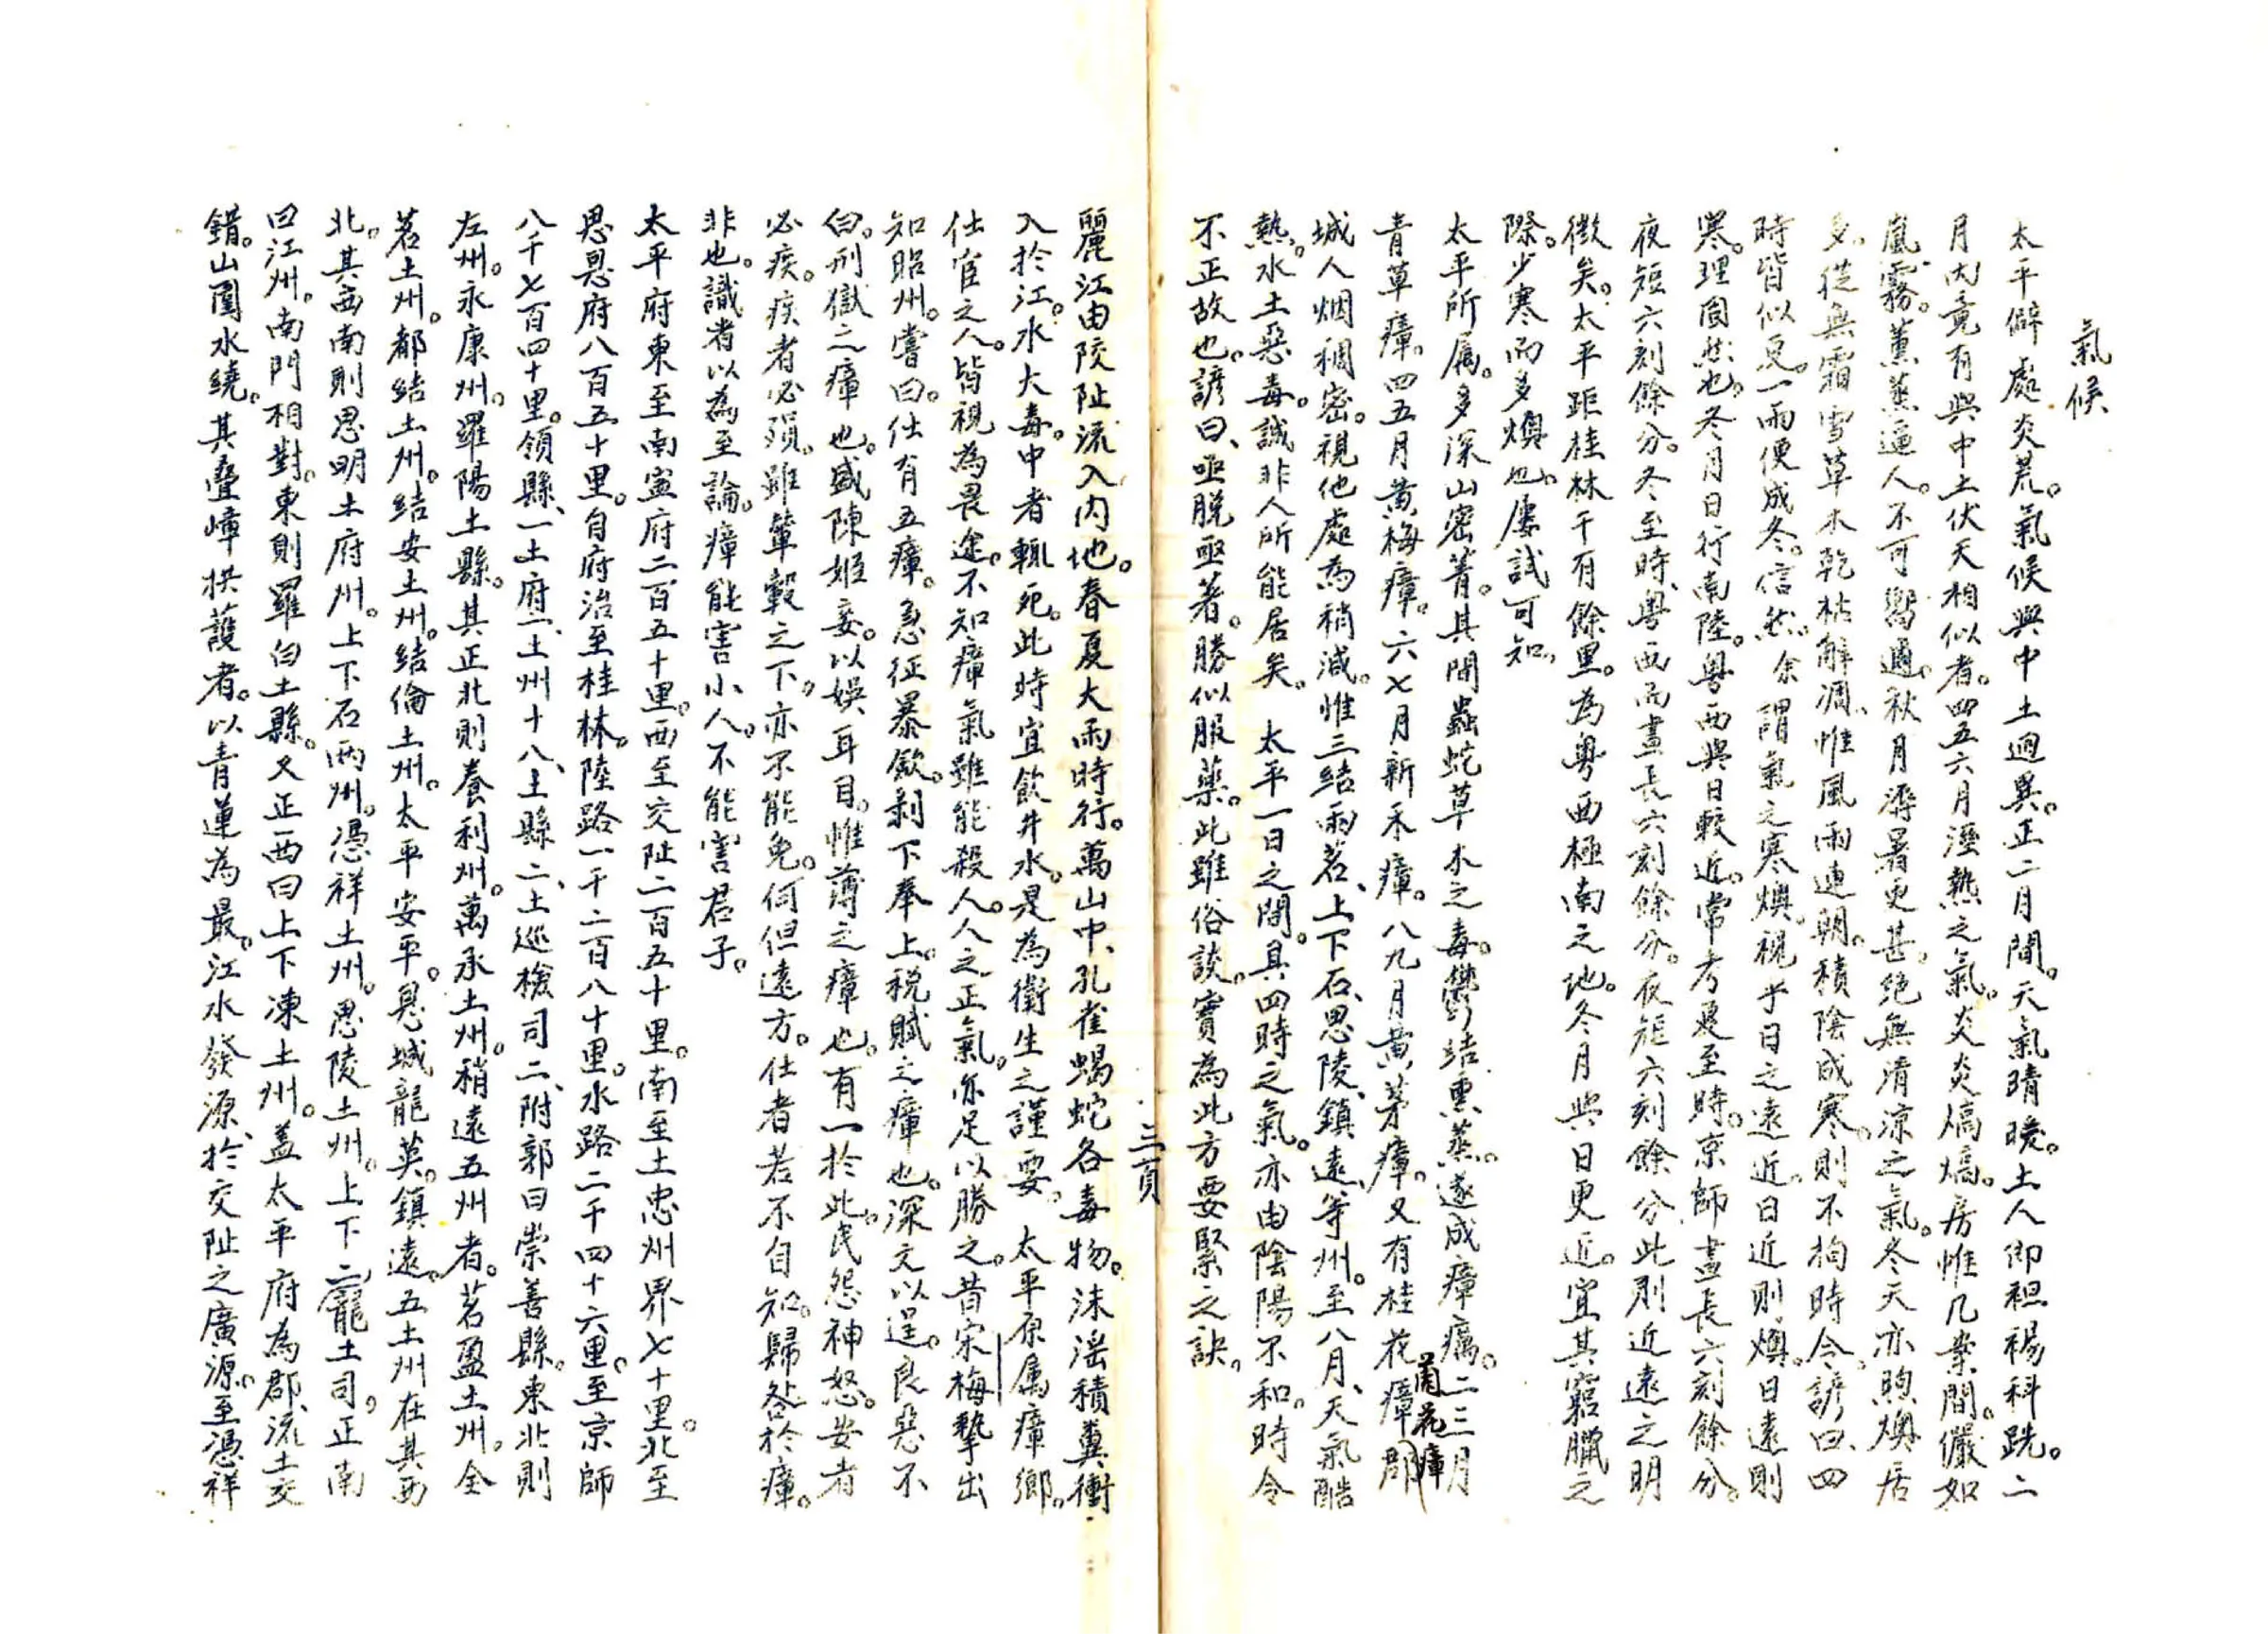 氣候
太平僻處炎荒。氣候與中土迥異。正二月間。天氣晴暖。土人卽袒裼科跣。二
月內竟有與中土伏天相似者。四五六月溼熱之氣。炎炎熇熇。房帷几案間。儼如
嵐霧。薰蒸逼人。不可嚮邇。秋月溽暑更甚。絕無清涼之氣。冬天亦煦燠居
多。從無霜雪草木乾枯解凋。惟風雨連朝。積陰成寒。則不拘時令。諺曰、四
時皆似夏。一雨便成冬。信然。余謂氣之寒燠。視乎日之遠近。日近則燠。日遠則
寒。理固然也。冬月日行南陸。粵西與日較近。常考夏至時。京師晝長六刻餘分。
夜短六刻餘分。冬至時、粵西而晝長六刻餘分。夜短六刻餘分此則近遠之明
徵矣。太平距桂林千有餘里。為粵西極南之地。冬月與日更近。宜其窮臘之
際。少寒而多燠也。屢試可知。
太平所屬。多深山密菁。其間蟲蛇草木之毒。鬱結熏蒸。遂成瘴癘。二三月
青草瘴。四五月黃梅瘴。六七月新禾瘴。八九月黃茅瘴。又有桂花瘴菊花瘴郡
城人烟稠密。視他處為稍減。惟三結兩茗、上下石、思陵、鎮遠、等州。至八月、天氣酷
熱。水土惡毒。誠非人所能居矣。 太平一日之間。具四時之氣。亦由陰陽不和。時令
不正故也。諺曰、亟脫亟著。勝似服藥。此雖俗談。實為此方要緊之訣。
三頁
麗江由陔阯流入內地。春夏大雨時行。萬山中、孔雀蝎蛇各毒物。沫滛積糞衝
入於江。水大毒。中者輒死。此時宜飲井水。是為衛生之謹要。 太平原屬瘴鄉。
仕宦之人。皆視為畏途。不知瘴氣雖能殺人。人之正氣。亦足以勝之。昔宋梅摯出
知昭州。嘗曰。仕有五瘴。急征暴斂。剝下奉上。稅賦之瘴也。深文以逞。良惡不
白。刑獄之瘴也。盛陳姬妾。以娛耳目。惟薄之瘴也。有一於此。民怨神怒。安者
必疾。疾者必殞。雖輦轂之下。亦不能免。何但遠方。仕者若不自知。歸咎於瘴。
非也。識者以為至論。瘴能害小人。不能害君子。
太平府東至南寧府二百五十里。西至交阯二百五十里。南至土忠州界七十里。北至
思恩府八百五十里。自府治至桂林。陸路一千二百八十里。水路二千四十六里。至京師
八千七百四十里。領縣一土府一、土州十八、土縣二、土巡檢司二、附郭曰崇善縣。東北則
左州。永康州。羅陽土縣。其正北則養利州。萬承土州。稍遠五州者。茗盈土州。全
茗土州。都結土州。結安土州。結倫土州。太平安平。恩城龍英。鎮遠。五土州在其西
北。其西南則思明土府州。上下石兩州。憑祥土州。思陵土州。上下二龍土司。正南
曰江州。南門相對。東則羅白土縣。又正西曰上下凍土州。蓋太平府為郡。流土交
錯。山圍水繞。其疊嶂拱護者。以青蓮為最。江水發源、於交阯之廣源。至憑祥